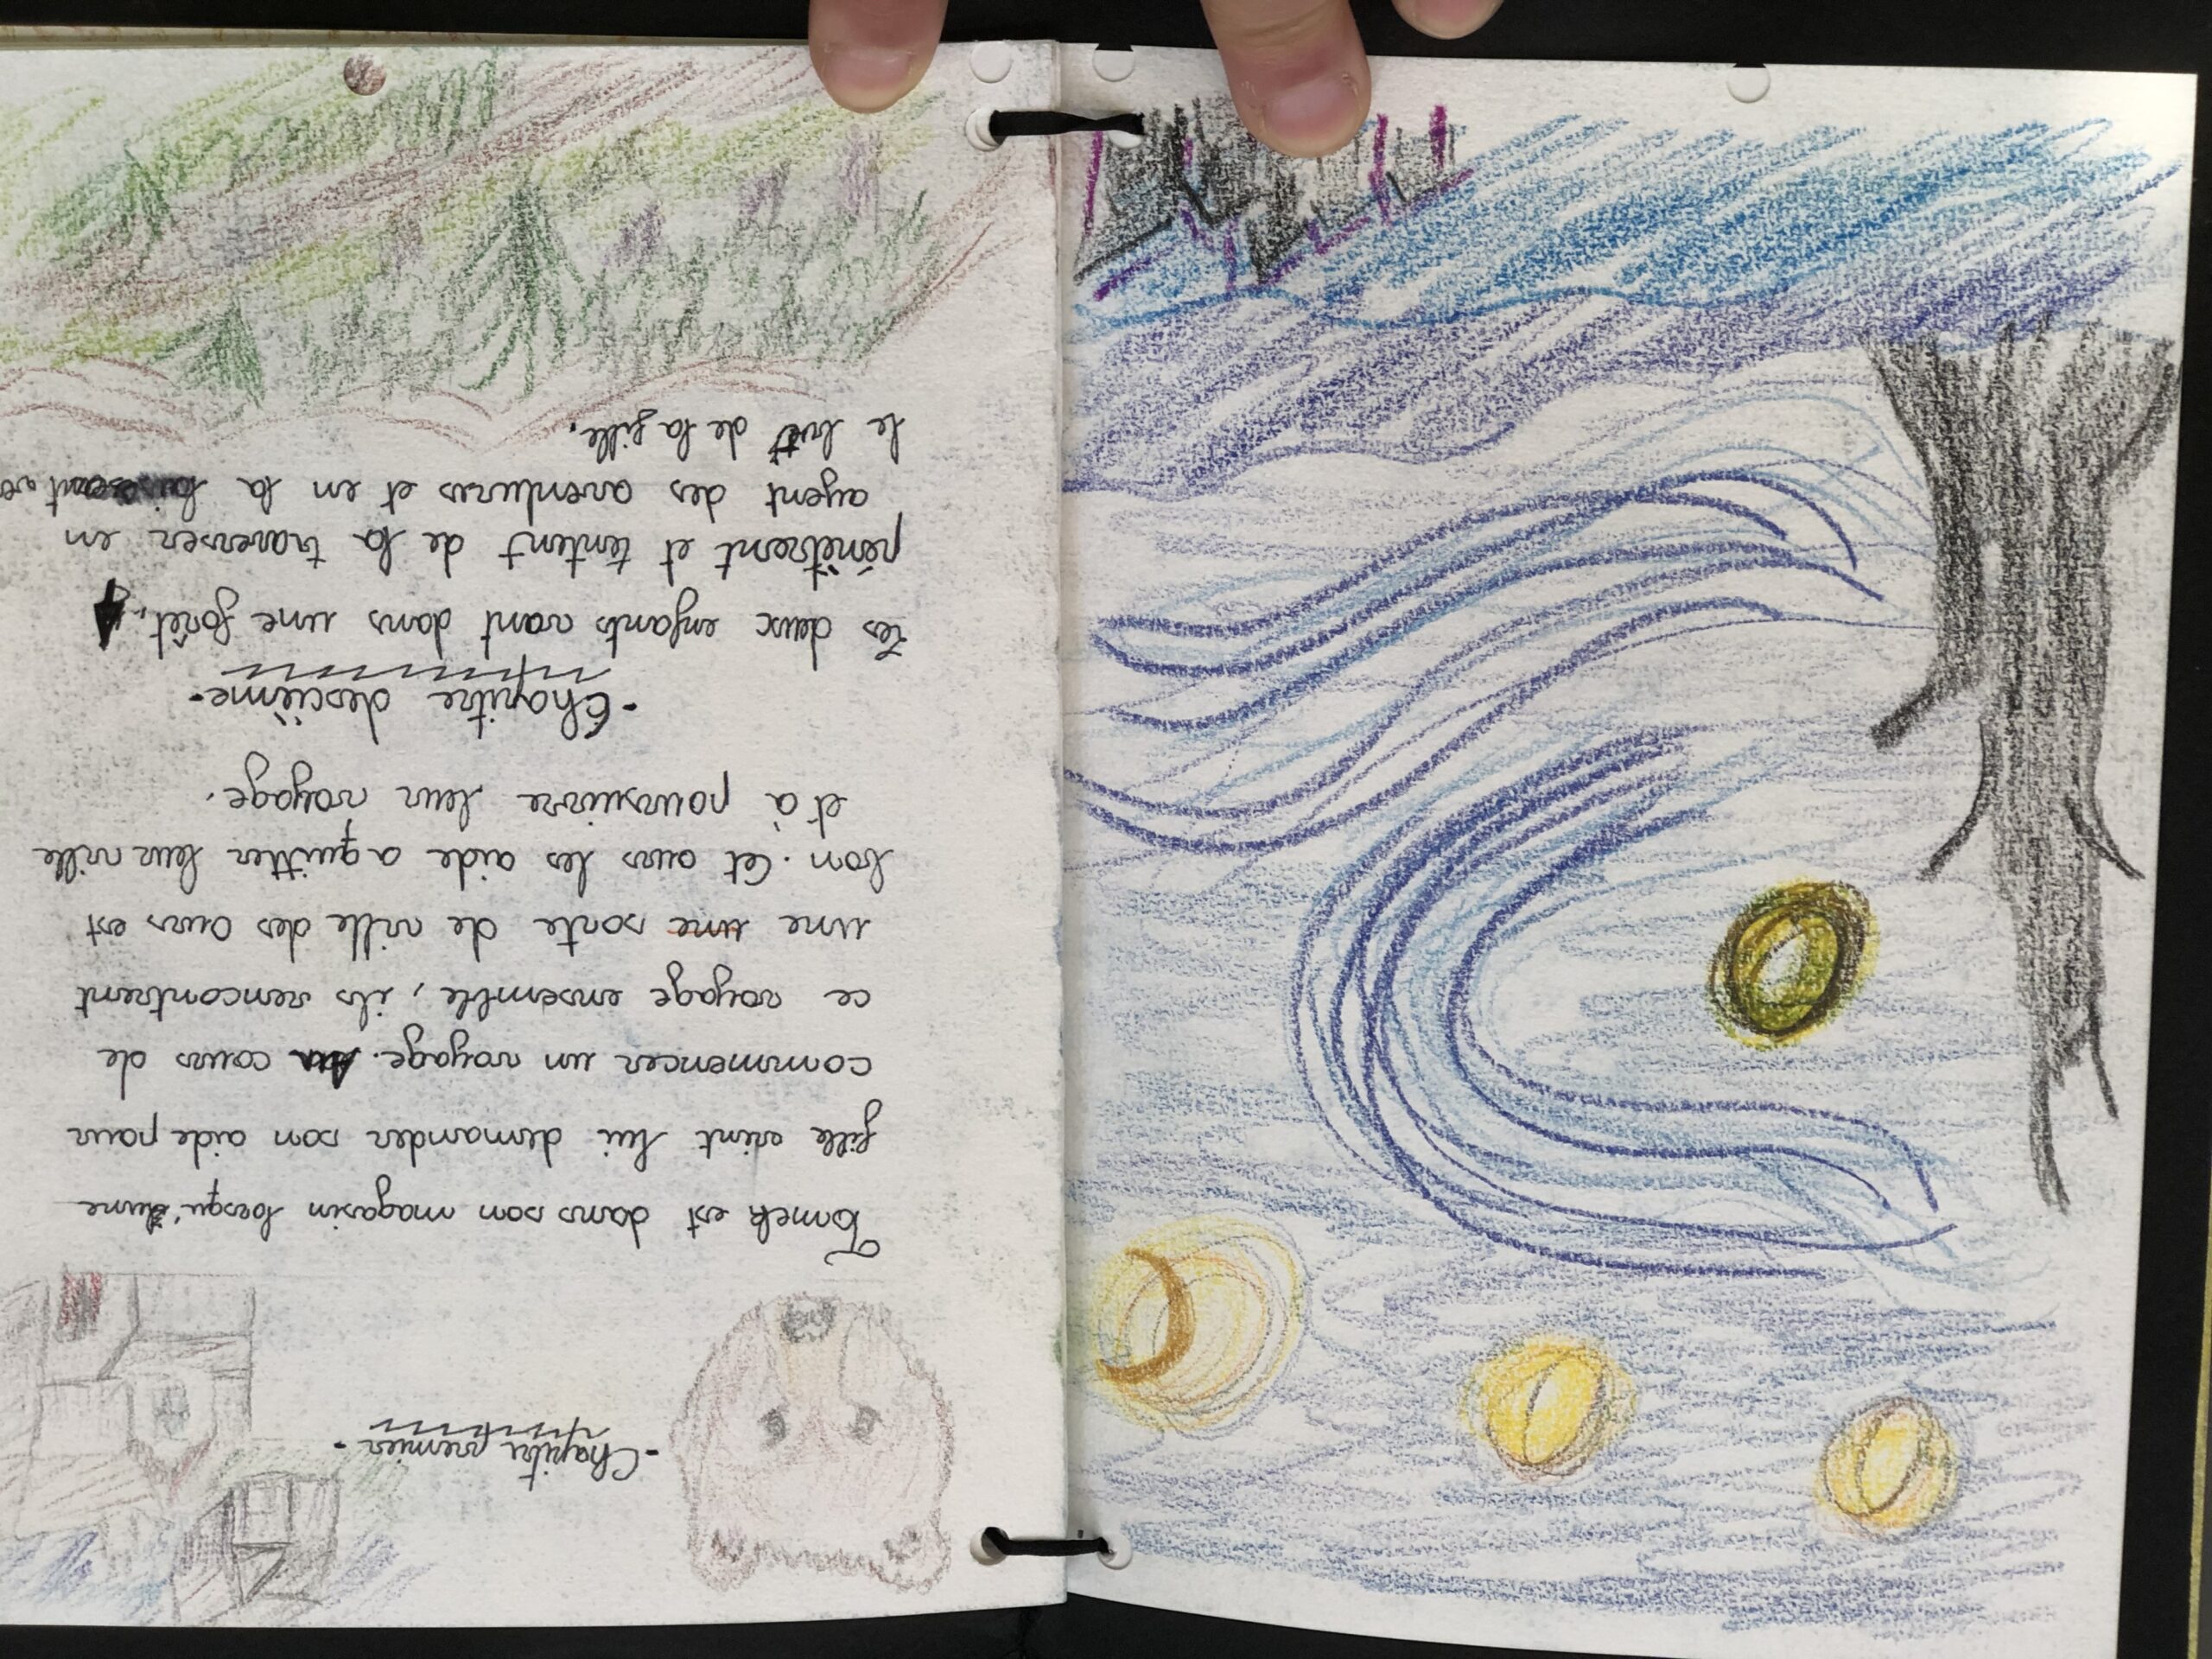 -Chapitre premier-
Tomek est dans son magasin lorsqu'une
fille vient lui demander son aide pour
commencer un voyage. Au cours de
ce voyage ensemble, ils rencontrent
une une sorte de ville des ours est
bon. Cet ours les aide a quitter leur ville
et à poursuivre leur voyage.
-Chapitre descième-
Les deux enfants vont dans une forêt, y
pénètrent et tentent de la traverser en
ayent des aventures et en la laissant
le but de la fille.